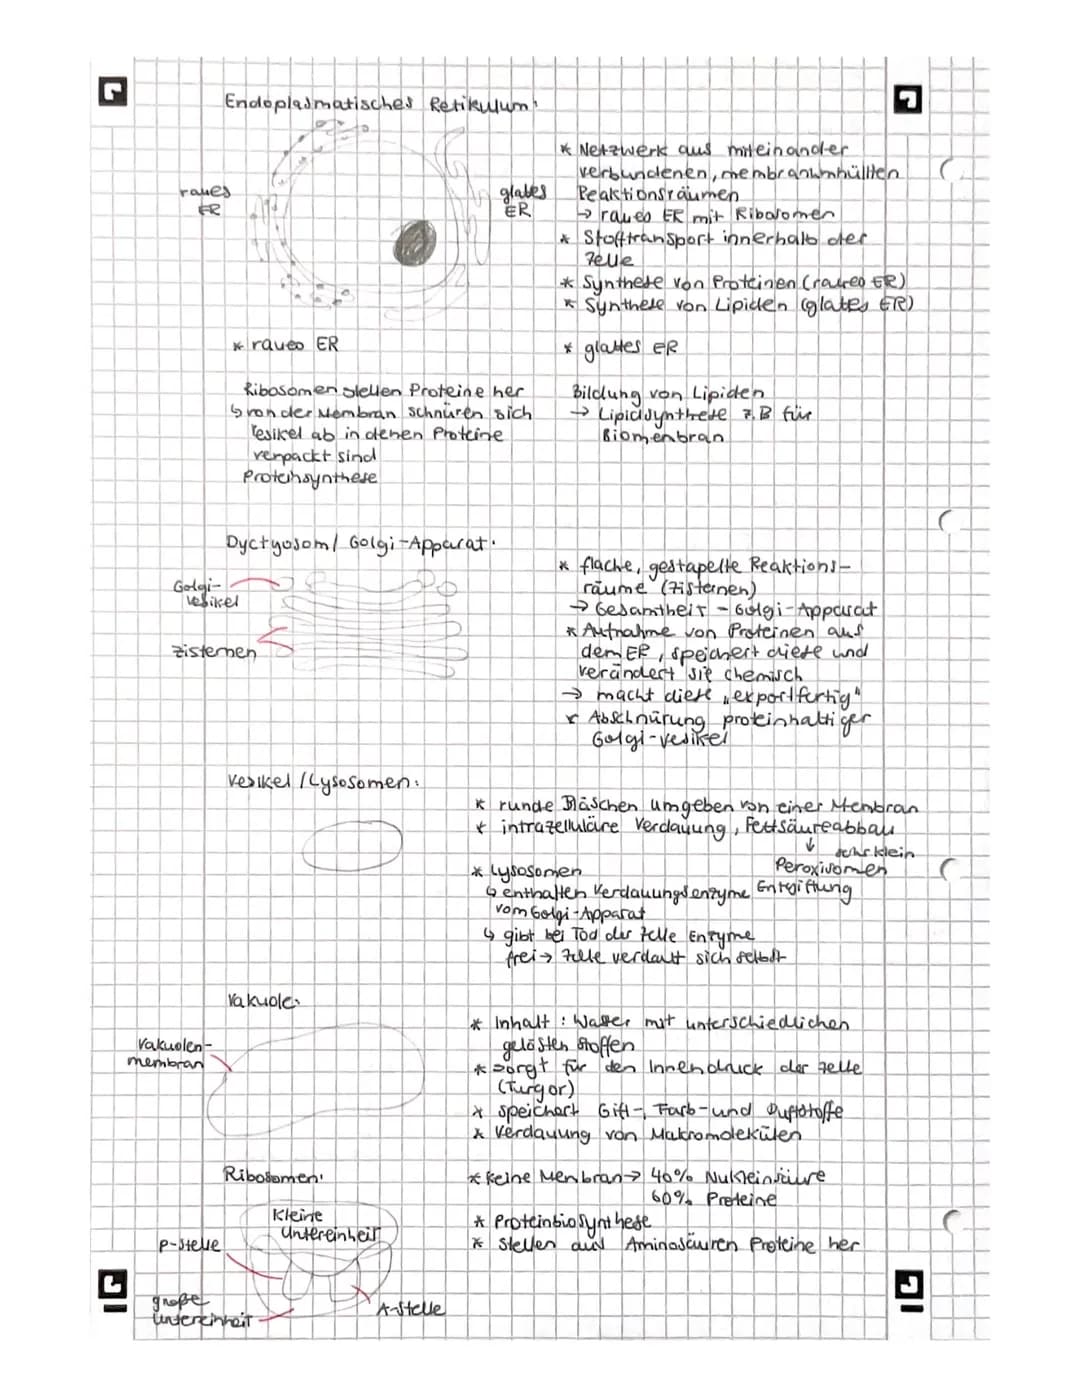 Endoplasmatisches Retikulum:
raues
ER
glattes
ER
* Netzwerk aus miteinander
verbundenen, membranumhüllten
Reaktionsräumen
→ raues ER mit Ribosomen
* Stofftransport innerhalb der
Zelle
* Synthese von Proteinen (raues ER)
* Synthese von Lipiden (glattes ER)
* raues ER
Ribosomen stellen Proteine her
↳ von der Membran schnüren sich
Vesikel ab in denen Proteine
verpackt sind
Proteinsynthese
* glattes ER
Bildung von Lipiden
→ Lipidsynthese z.B für
Biomenbran
Dyctyosom/ Golgi-Apparat:
Golgi-
vesikel
Zisternen
* flache, gestapelte Reaktions-
räume (Zisternen)
→ Gesamtheit - Golgi-Apparat
* Aufnahme von Proteinen aus
dem ER, speichert diese und
verändert sie chemisch
→ macht diese „exportfertig"
* Abschnürung proteinhaltiger
Golgi-vesikel
Vesikel /Lysosomen:
* runde Bläschen umgeben von einer Menbran
* intrazelluläre Verdauung, Fettsäureabbau
↓ sehr klein
Peroxisomen
Entgiftung
* Lysosomen
↳ enthalten Verdauungsenzyme
vom Golgi-Apparat
↳ gibt bei Tod der Zelle Enzyme
frei → Zelle verdaut sich selbst
Vakuole:
Vakuolen-
membran
* Inhalt : Wasser mit unterschiedlichen
gelösten Stoffen
* sorgt für den Innendruck der Zelle
(Turgor)
* speichert Gift-, Farb- und Duftstoffe
* Verdauung von Makromolekülen
Ribosomen:
Kleine
Untereinheit
P-Stelle
große
Untereinheit
A-Stelle
* Keine Menbran → 40% Nukleinsäure
60% Proteine
* Proteinbiosynthese
* stellen aus Aminosäuren Proteine her